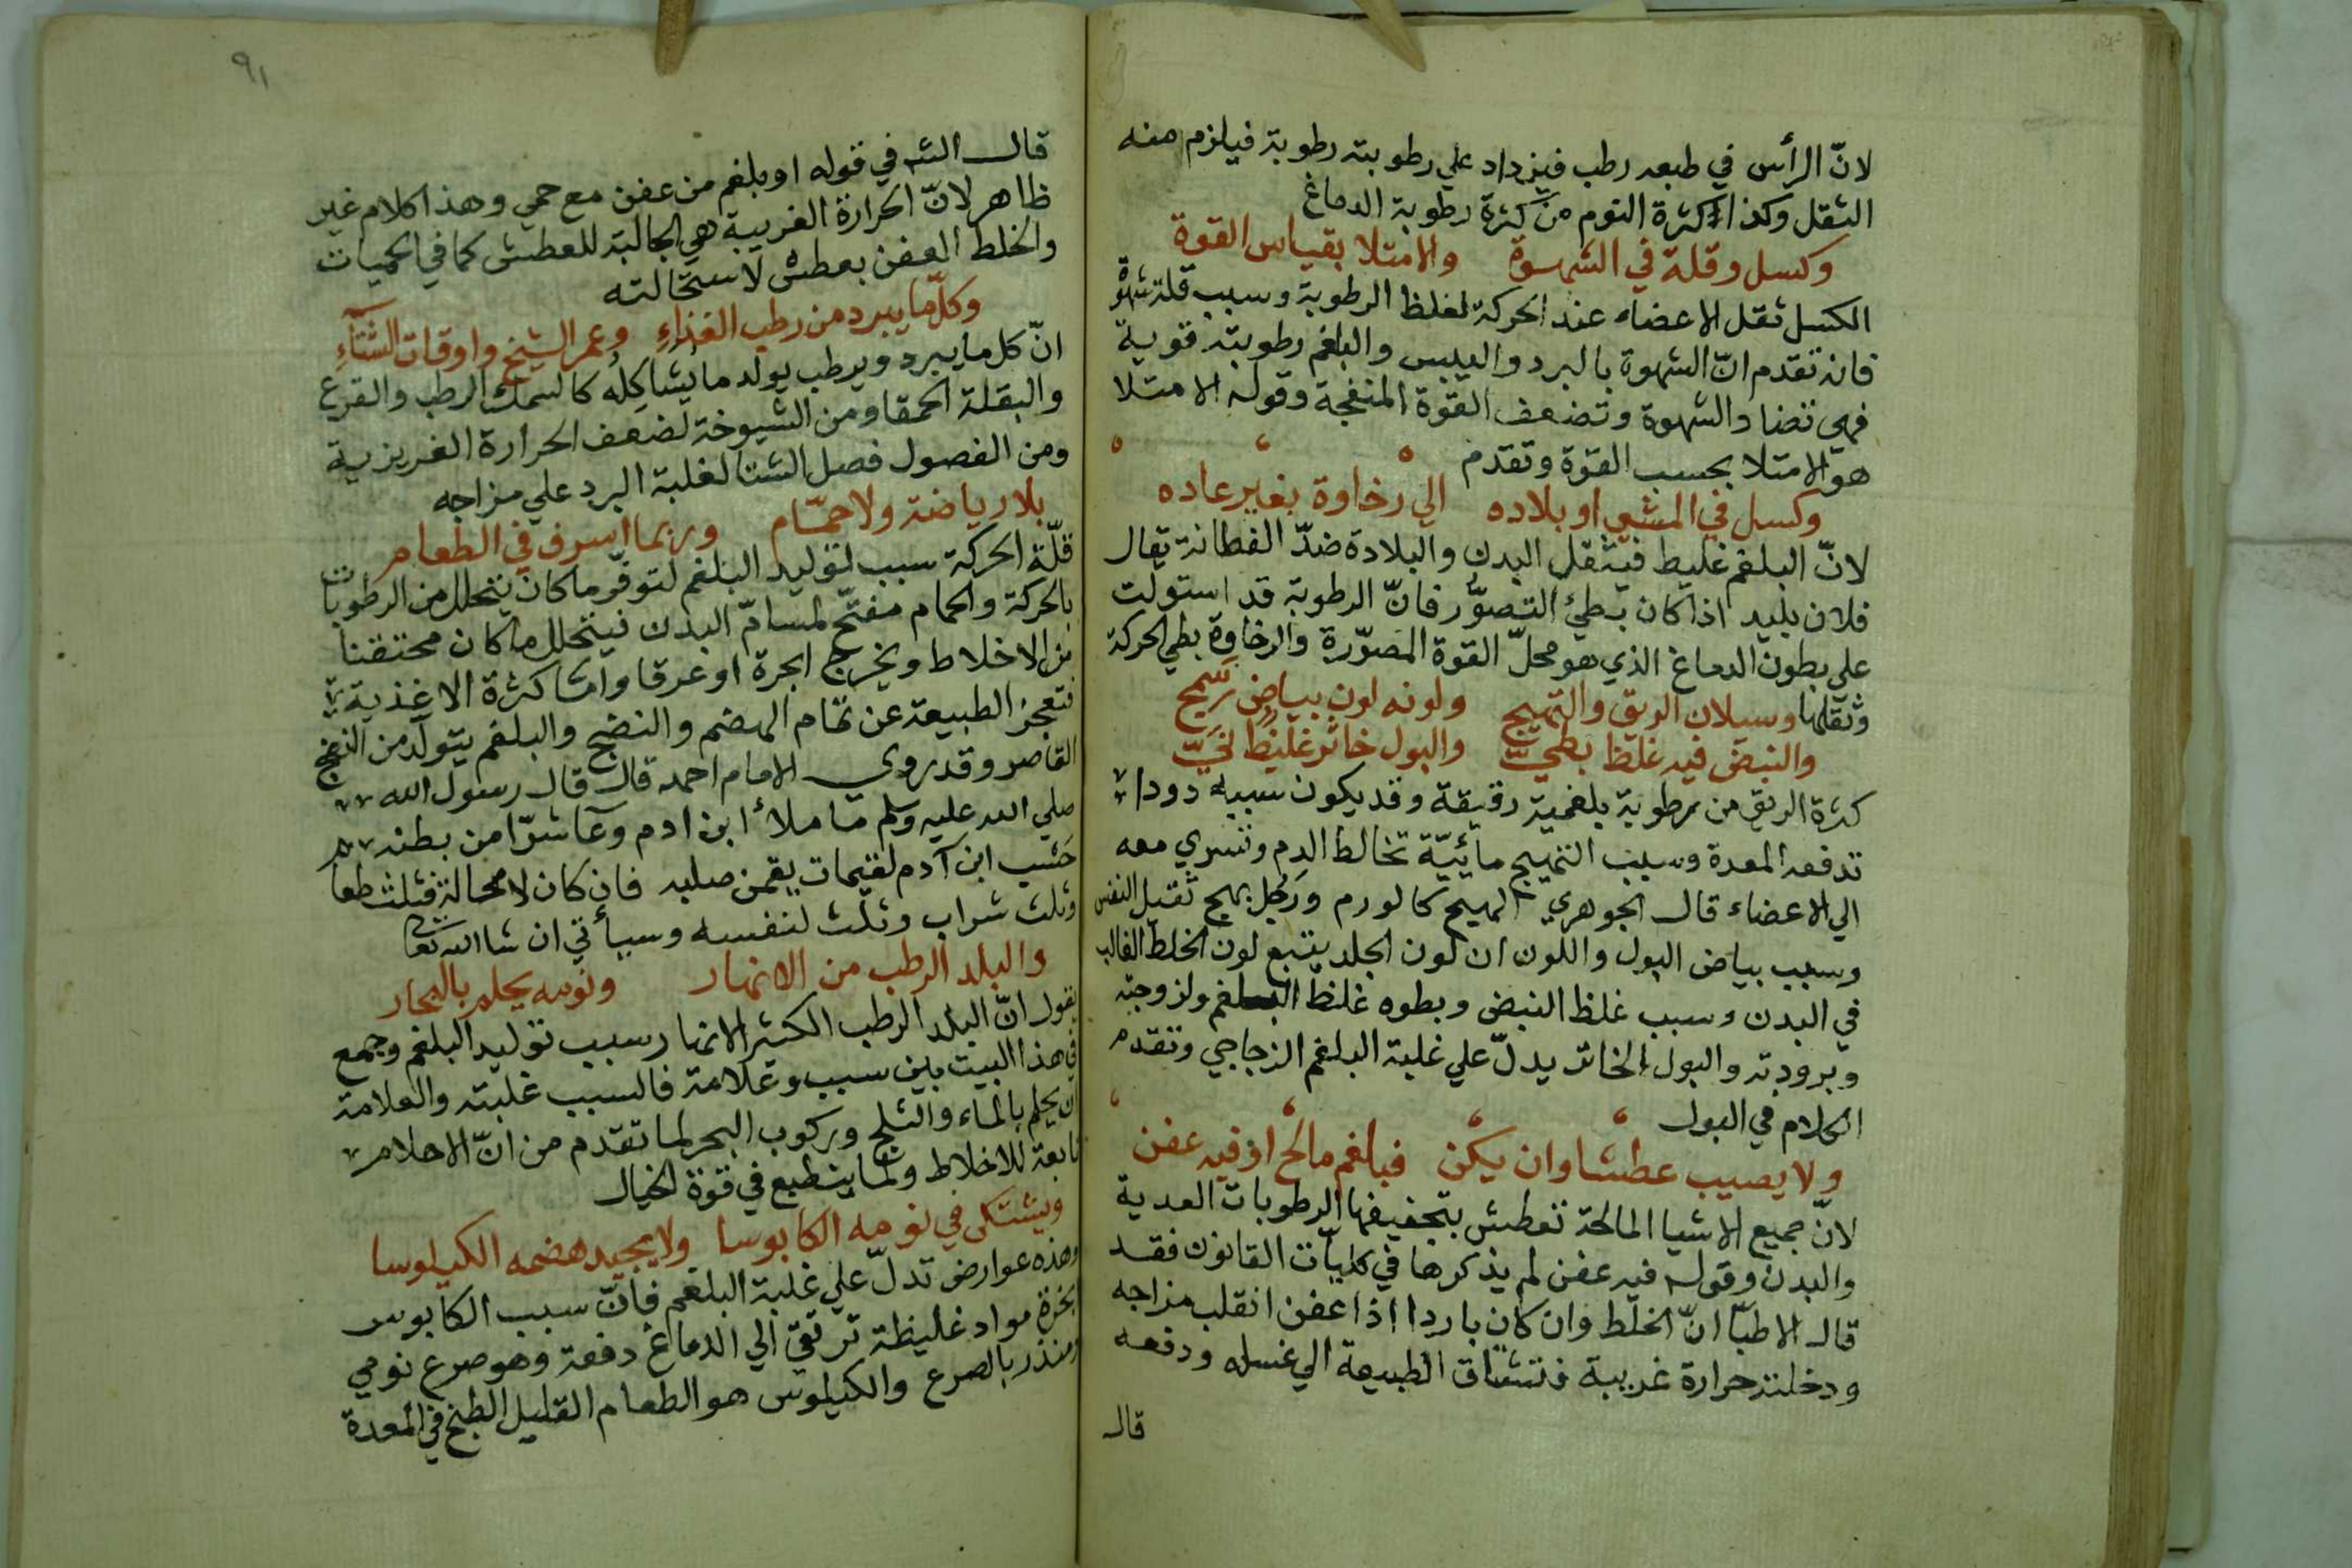 لانّ الرأس في طبعه رطب فيزداد علي رطوبته رطوبة فيلزم منه
الثقل وكذا كثرة النوم من كثرة رطوبة الدماغ
وكسل وقلة في الشهوة والامتلا بقياس القوة
الكسل ثقل الاعضاء عند الحركة لغلظ الرطوبة وسبب قلة شهوة
فانه تقدم انّ الشهوة بالبرد واليبس والبلغم رطوبته قوية
فهي تضاد الشهوة وتضعف القوة المنفجة وقوله الامتلا
هو الامتلا بحسب القوة وتقدم
وكسل في المشي او بلاده الي رخاوة بغير عاده
لانّ البلغم غليظ فيثقل البدن والبلادة ضدّ الفطانة يقال
فلان بليد اذا كان بطيئ التصوّر فانّ الرطوبة قد استولت
علي بطون الدماغ الذي هو محلّ القوة المصوّرة والرخاوة بطي الحركة
وثقلها وسيلان الريق والتهيج ولونه لون بياض سمج
والنبض فيه غلظ بطيّ والبول خاثر غليظ نيّ
كثرة الريق من رطوبة بلغمية رقيقة وقد يكون سببه دودا
تدفعه المعدة وسبب التهيج مائيّة تخالط الدم وتسري معه
الي الاعضاء قال الجوهري الهيج كالورم ورجل بهج ثقيل النفس
وسبب بياض البول واللون ان لون الجلد يتبع لون الخلط الغالب
في البدن وسبب غلظ النبض وبطوه غلظ البلغم ولزوجته
وبرودته والبول الخاثر يدلّ علي غلبة البلغم الزجاجي وتقدم
الكلام في البول
ولا يصيب عطشا وان يكن فبلغم مالح اذ فيه عفن
لانّ جميع الاشيا المالحة تعطش بتجفيفها الرطوبات العدية
والبدن وقوله فيه عفن لم يذكرها في كليّات القانون فقد
قال الاطبّا انّ الخلط وان كان باردا اذا عفن انقلب مزاجه
ودخلته حرارة غريبة فتشتاق الطبيعة الي غسله ودفعه
قال
٩١
قال الش في قوله او بلغم من عفن مع حمي وهذا كلام غير
ظاهر لانّ الحرارة الغريبة هي الجالبة للعطش كما في الحميات
والخلط العفن يعطش لاستحالته
وكلّ ما يبرد من رطب الغذاء وعمر الشيخ واوقات الشتاء
انّ كل ما يبرد ويرطب يولد ما يشاكله كالسمك الرطب والقرع
والبقلة الحمقا ومن الشيوخة لضعف الحرارة الغريزية
ومن الفصول فصل الشتا لغلبة البرد علي مزاجه
بلا رياضة ولا حمّام وربما اسرف في الطعام
قلّة الحركة سبب لتوليد البلغم لتوفّر ما كان يتحلل من الرطوبات
بالحركة والحمام مفتّح لمسامّ البدن فيتحلل ما كان محتقنا
من الاخلاط ويخرج ابخرة او عرقا وامّا كثرة الاغذية
فتعجز الطبيعة عن تمام الهضم والنضج والبلغم يتولّد من النضج
القاصر وقد روي الامام احمد قال قال رسول الله
صلي الله عليه وسلم ما ملأ ابن ادم وعآ شرّا من بطنه
حسب ابن آدم لقيمات يقمن صلبه فان كان لا محالة فثلث طعا
وثلث شراب وثلث لنفسه وسيأتي ان شا الله تعا
والبلد الرطب من الانهار ونومه يحلم بالبحار
يقول انّ البلد الرطب الكثير الانهار سبب توليد البلغم وجمع
في هذا البيت بين سبب وعلامة فالسبب غلبته والعلامة
ان يحلم بالماء والثلج وركوب البحر لما تقدم من انّ الاحلام
تابعة للاخلاط ولما ينطبع في قوة الخيال
ويشتكي في نومه الكابوسا ولا يجيد هضمه الكيلوسا
وهذه عوارض تدلّ علي غلبة البلغم فانّ سبب الكابوس
ابخرة مواد غليظة ترتقي الي الدماغ دفعة وهو صرع نومي
ومنذر بالصرع والكيلوس هو الطعام القليل الطبخ في المعدة